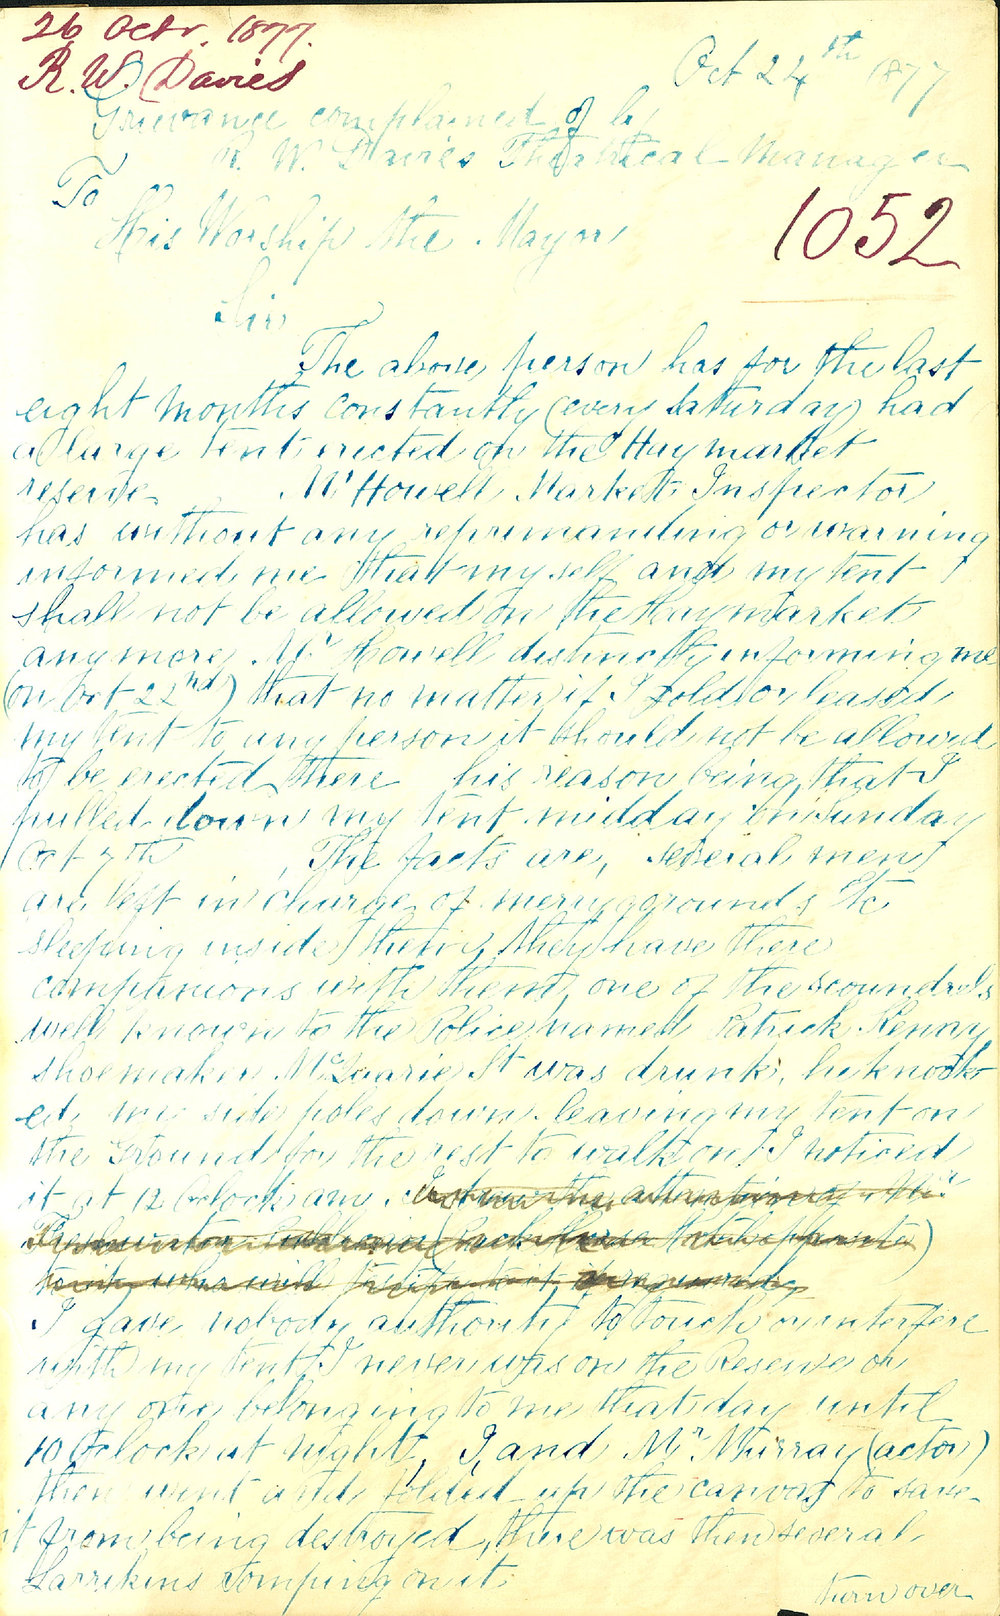 26 Octr. 1877.
R. W. Davies
Oct 24th 1877
Grievance complained of by
R. W. Davies Theatrical Manager
To
His Worship the Mayor
1052
Sir
The above person has for the last
eight months constantly (every Saturday) had
a large tent erected on the Haymarket
reserve Mr Howell Market Inspector
has without any reprimanding or warning
informed me that myself and my tent
shall not be allowed on the Haymarket
anymore. Mr Howell distinctly informing me
(on Oct 22nd) that no matter if I sold or leased
my tent to any person it should not be allowed
to be erected there his reason being that I
pulled down my tent midday on Sunday
Oct 7th The facts are, several men
are left in charge of merrygorounds Etc
sleeping inside them, they have there
companions with them, one of the scoundrels
well known to the Police named Patrick Kenny
shoemaker McQuarie St was drunk, he knock
ed my side poles down leaving my tent on
the Ground for the rest to walk on. I noticed
it at 12 Oclock am.
I gave nobody authority to touch or interfere
with my tent I never was on the Reserve or
any one belonging to me that day until
10 Oclock at night, I, and Mr Murray (actor)
then went and folded up the canvas to save
it from being destroyed, there was then several
Larrikins romping on it.
turn over